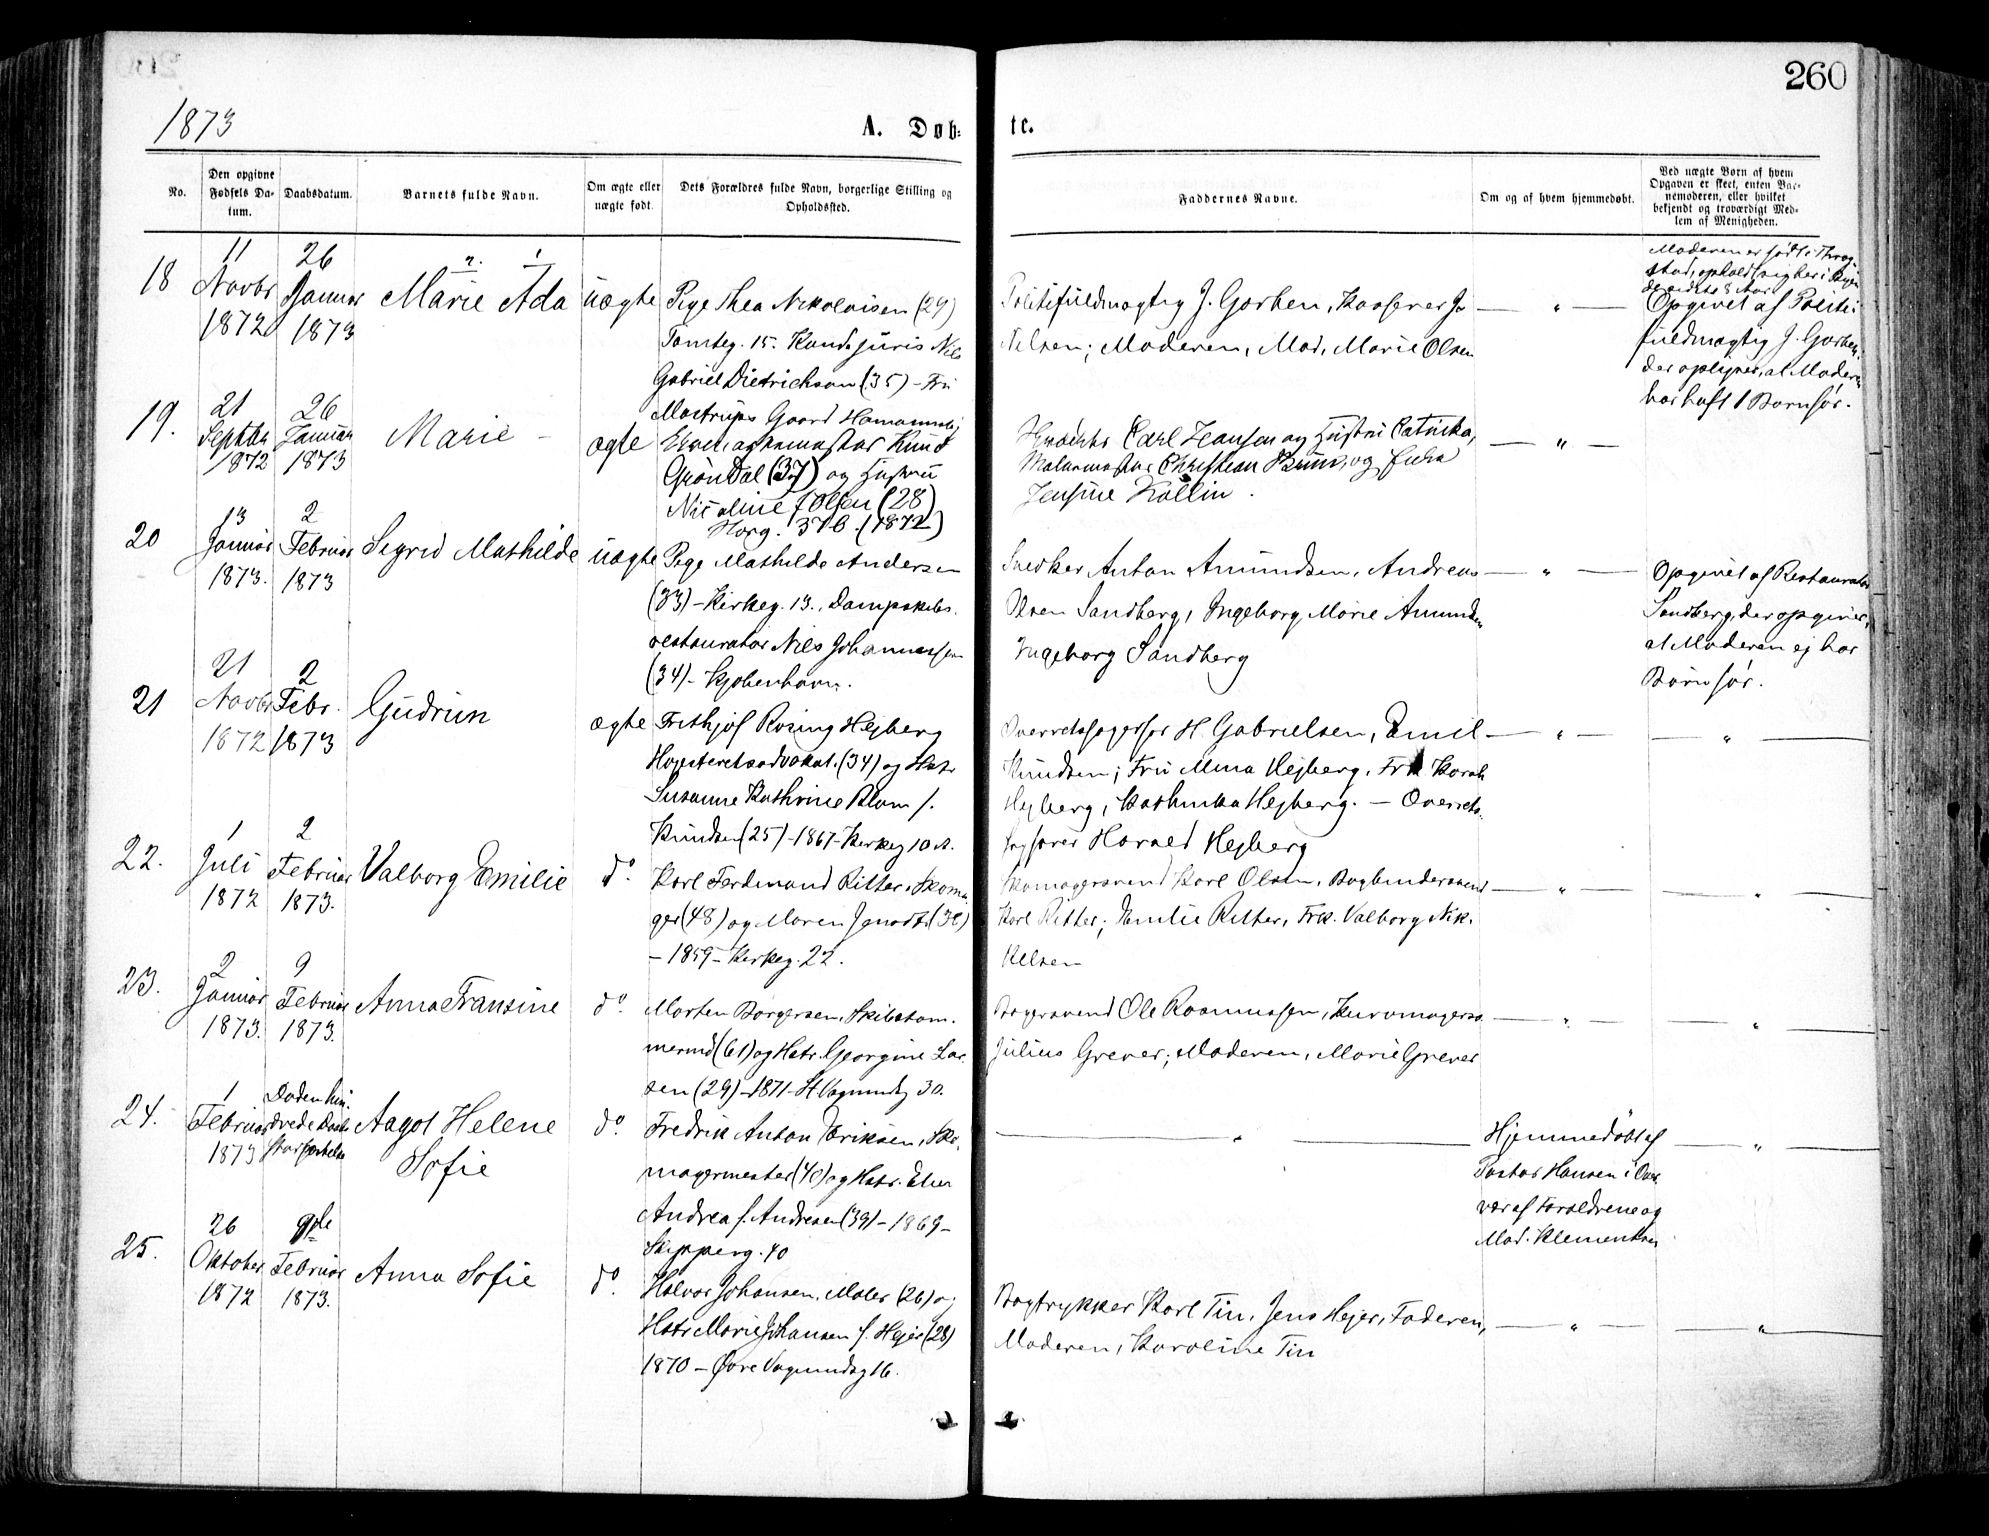 260
1873
A. Døb-
te.
No.
Den opgivne Fødsels Da-
tum.
Daabsdatum.
Barnets fulde Navn.
Om ægte eller
uægte født.
Dets Forældres fulde Navn, borgerlige Stilling og
Opholdssted.
Faddernes Navne.
Om og af hvem hjemmedøbt.
Ved uægte Børn af hvem
Opgaven er skeet, enten Bar-
nemoderen, eller hvilket
bekjendt og troværdigt Med-
lem af Menigheden.
18
11
Novbr
1872
26
Januar
1873
2. 1
Marie Ada
uægte
Pige Thea Nikolaisen (29)
Tomteg. 15. Kand. juris Nils
Gabriel Dietrichson (35) - Fru
Mostrups Gaard
Politifuldmægtig J. Gorben, Kasserer
Nilsen; Moderen, Mad. Marie Olsen
— " —
Moderen er født i
Opgivet af Politi-
fuldmægtig J. Gorben,
der oplyser, at Moderen
har haft 1 Barn før.
19.
21
Septbr
1872
26
Januar
1873
Marie -
ægte
Knud
Gröndal (37) og Hustru
Nicoline f. Olsen (28)
37 b. (1872)
Carl Hansen og Hustru
Malermester Christian og
Jensine
— " —
20
13
Januar
1873.
2
Februar
1873
Sigrid Mathilde
uægte
Pige Mathilde Andersen
(33) - Kirkeg. 13., Dampskibs-
restauratør Nils Johannessen
(34) - Kjøbenhavn.
Snedker Anton Amundsen, Andreas
Olsen Sandberg, Ingeborg Marie Amundsen
Ingeborg Sandberg
— " —
Opgivet af Restauratør
Sandberg, der opgiver,
at Moderen ej har
Børn før.
21
21
Novbr
1872
2
Febr.
1873
Gudrun
ægte
Frithjof Rosing Hejberg
Højesteretsadvokat. (34) og Hstr
Susanne Kathrine Blom f.
Knudsen (25) - 1867 - Kirkeg 10 A.
Overretssagfør H. Gabrielsen, Emil
Knudsen; Fru Mina Hejberg, Frk
Hejberg, Kathinka Hejberg. — Overrets-
sagfører Harald Hejberg
— " —
— " —
22.
1
Juli
1872
2
Februar
1873.
Valborg Emilie
do.
Karl Ferdinand Ritter, Skoma-
ger (48) og Maren
- 1859 - Kirkeg. 22.
Skomagersvend Karl Olsen, Bogbindersvend
Karl Ritter; Emilie Ritter, Frk. Valborg Nik-
kelsen
— " —
"
23.
2
Januar
1873.
9
Februar
1873.
Anna Fransine
do.
Morten Borgersen, Skibstøm-
mermd (61) og Hstr. Georgine Lar-
sen (29) - 1871 - St 30.
Bagersvend Ole Rasmussen, Kurvmagersv.
Julius Grever; Moderen, Marie Grever
— " —
"
24.
1
Februar
1873
Døden hin-
drede Daabs
stadfæstelse
Aagot Helene
Sofie
do.
Fredrik Anton Eriksen, Sko-
magermester (40) og Hstr. Elen
Andrea f. Andresen (39) - 1869 -
Skipperg. 40
— " —
Hjemmedøbt af
Pastor Hansen i Over-
vær af Forældrene og
Mad. Klementsen
— " —
25.
26
Oktober
1872
9de
Februar
1873.
Anna Sofie
do.
Halvor Johansen, Maler (26) og
Hstr Marie Johansen f. Hejer (28)
1870 - Øvre Vognmandsg 16.
Bogtrykker Karl Tin, Jens Hejer, Faderen,
Moderen, Karoline Tin
— " —
— " —